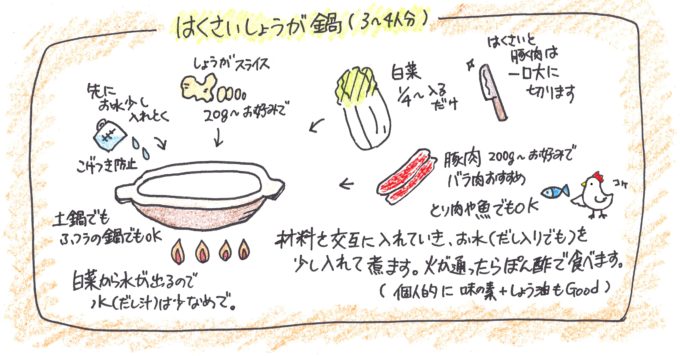 はくさいしょうが鍋(3~4人分)
先に
お水少し
入れとく
こげつき防止
しょうがスライス
20g~お好みで
白菜
1/4~入る
だけ
はくさいと
豚肉は
一口大に
切ります
豚肉 200g~お好みで
バラ肉おすすめ
とり肉や魚でもOK
コケ
土鍋でも
ふつうの鍋でもOK
白菜から水が出るので
水(だし汁)は少なめで。
材料を交互に入れていき、お水(だし入りでも)を
少し入れて煮ます。火が通ったらぽん酢で食べます。
(個人的に 味の素+しょう油もGood)